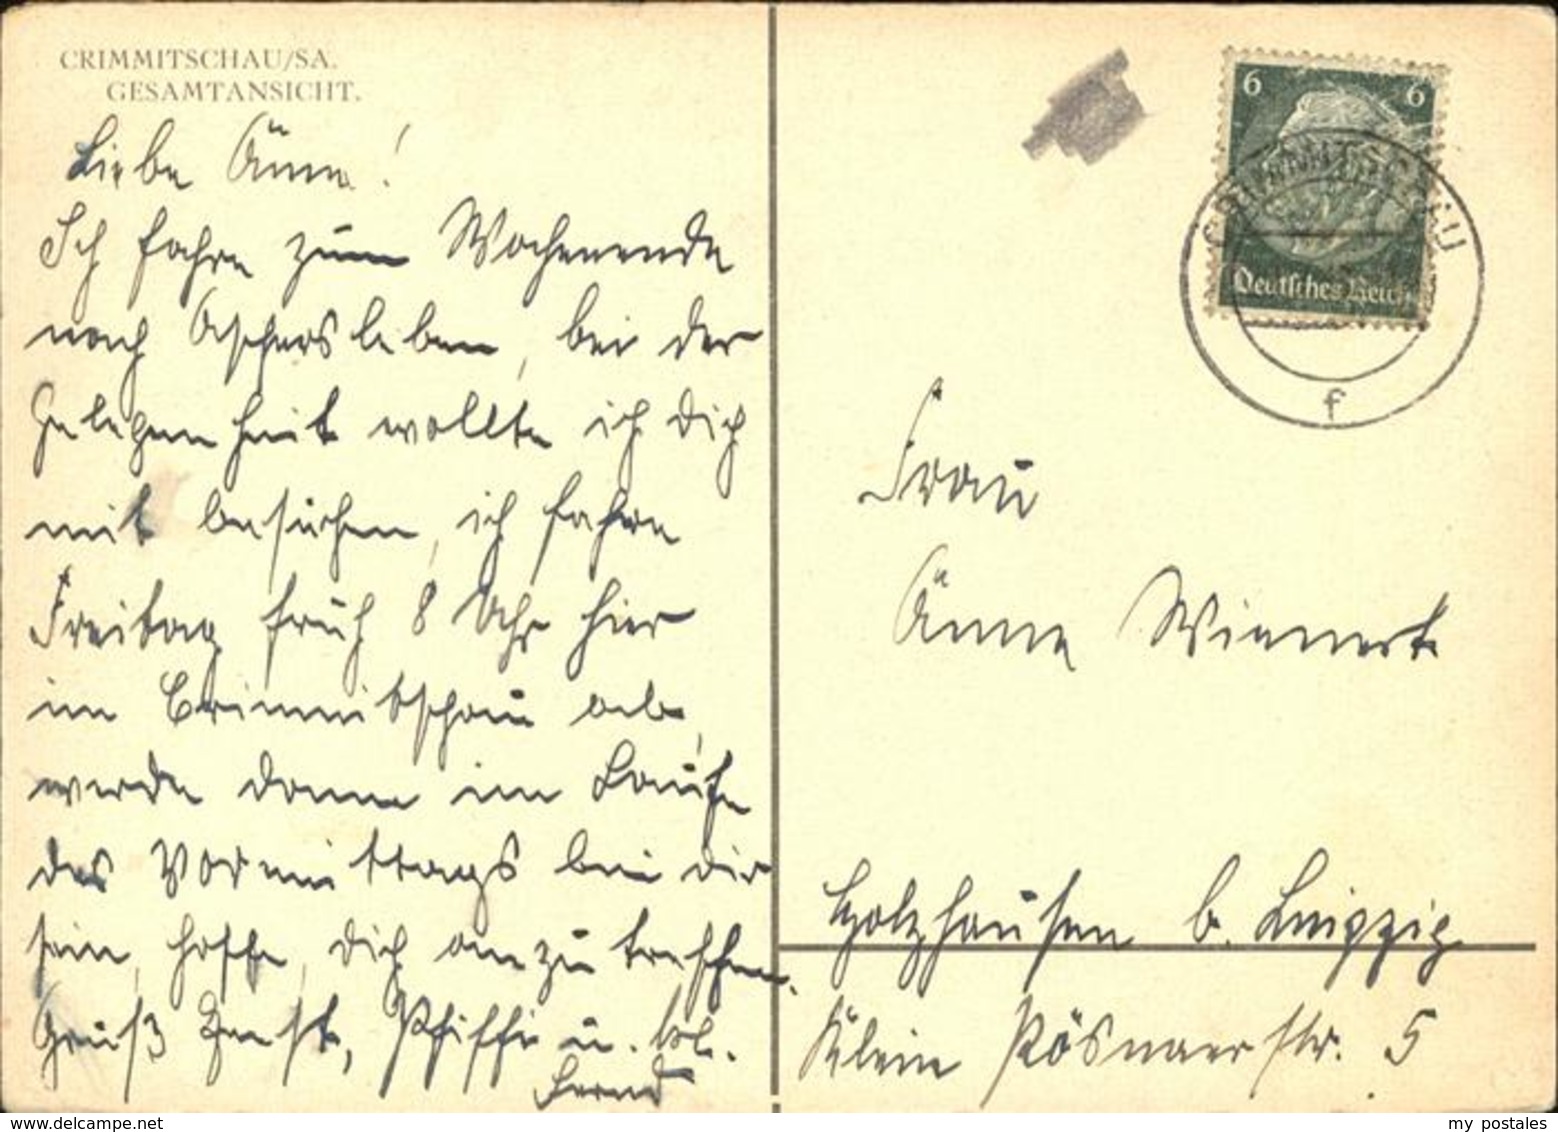 CRIMMITSCHAU/SA.
GESAMTANSICHT.
Liebe Änne!
Ich fahre zum Wochenende
nach Aschersleben, bei der
Gelegenheit wollte ich dich
mit besuchen, ich fahre
Freitag früh 8 Uhr hier
in Crimmitschau ab,
werde dann im Laufe
des Vormittags bei dir
sein, hoffe, dich anzutreffen.
Gruß Ernst, u. kl.
6 6
Deutsches Reich
CRIMMITSCHAU
f
Frau
Änne Wienert
Holzhausen b. Leipzig
Klein Pösnaer str. 5
delcampe.net
my_postales